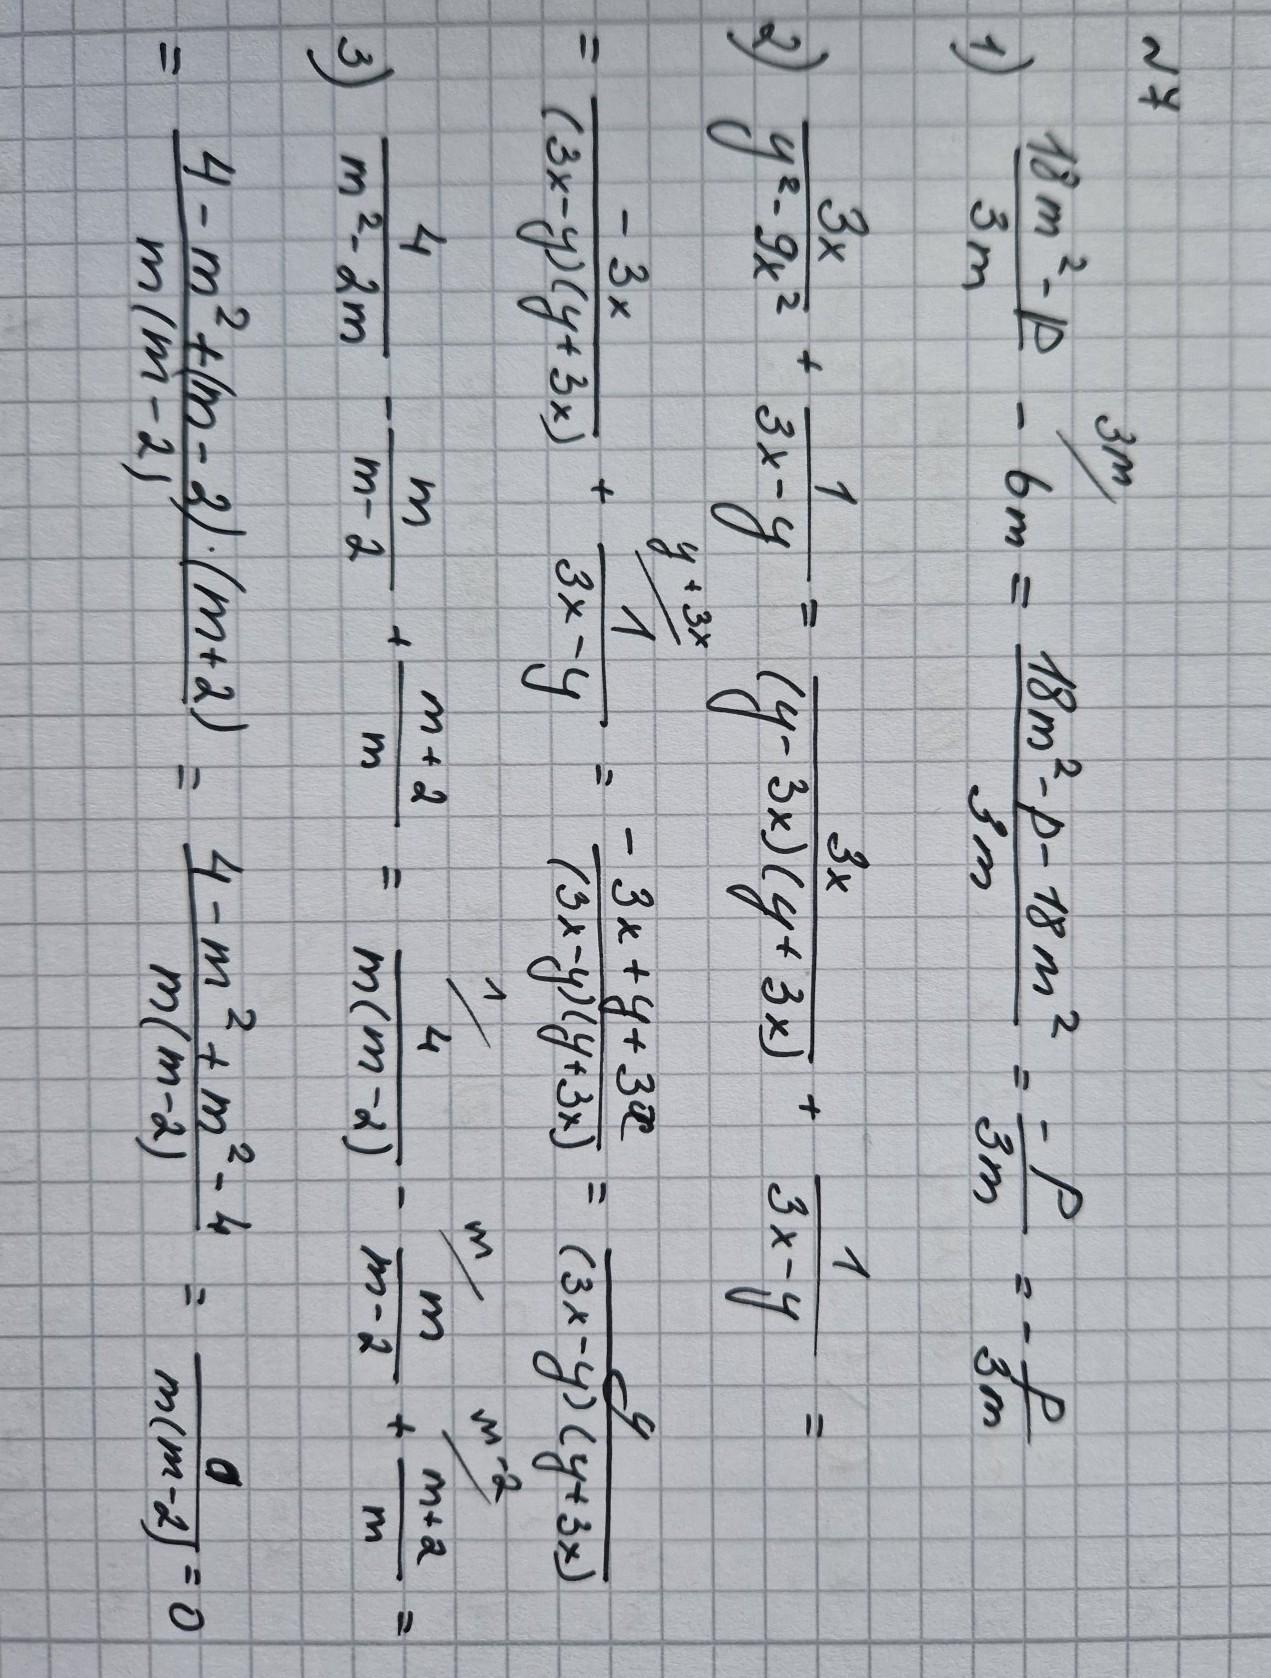 №7
1) (18m² - p)/(3m) - 6m /3m = (18m² - p - 18m²)/(3m) = (-p)/(3m) = - p/(3m)
2) 3x/(y² - 9x²) + 1/(3x - y) = 3x/((y - 3x)(y + 3x)) + 1/(3x - y) =
= (-3x)/((3x - y)(y + 3x)) + 1/(3x - y) /y + 3x = (-3x + y + 3x)/((3x - y)(y + 3x)) = y/((3x - y)(y + 3x))
3) 4/(m² - 2m) - m/(m - 2) + (m + 2)/m = 4/(m(m - 2)) /1 - m/(m - 2) /m + (m + 2)/m /m - 2 =
= (4 - m² + (m - 2)·(m + 2))/(m(m - 2)) = (4 - m² + m² - 4)/(m(m - 2)) = 0/(m(m - 2)) = 0